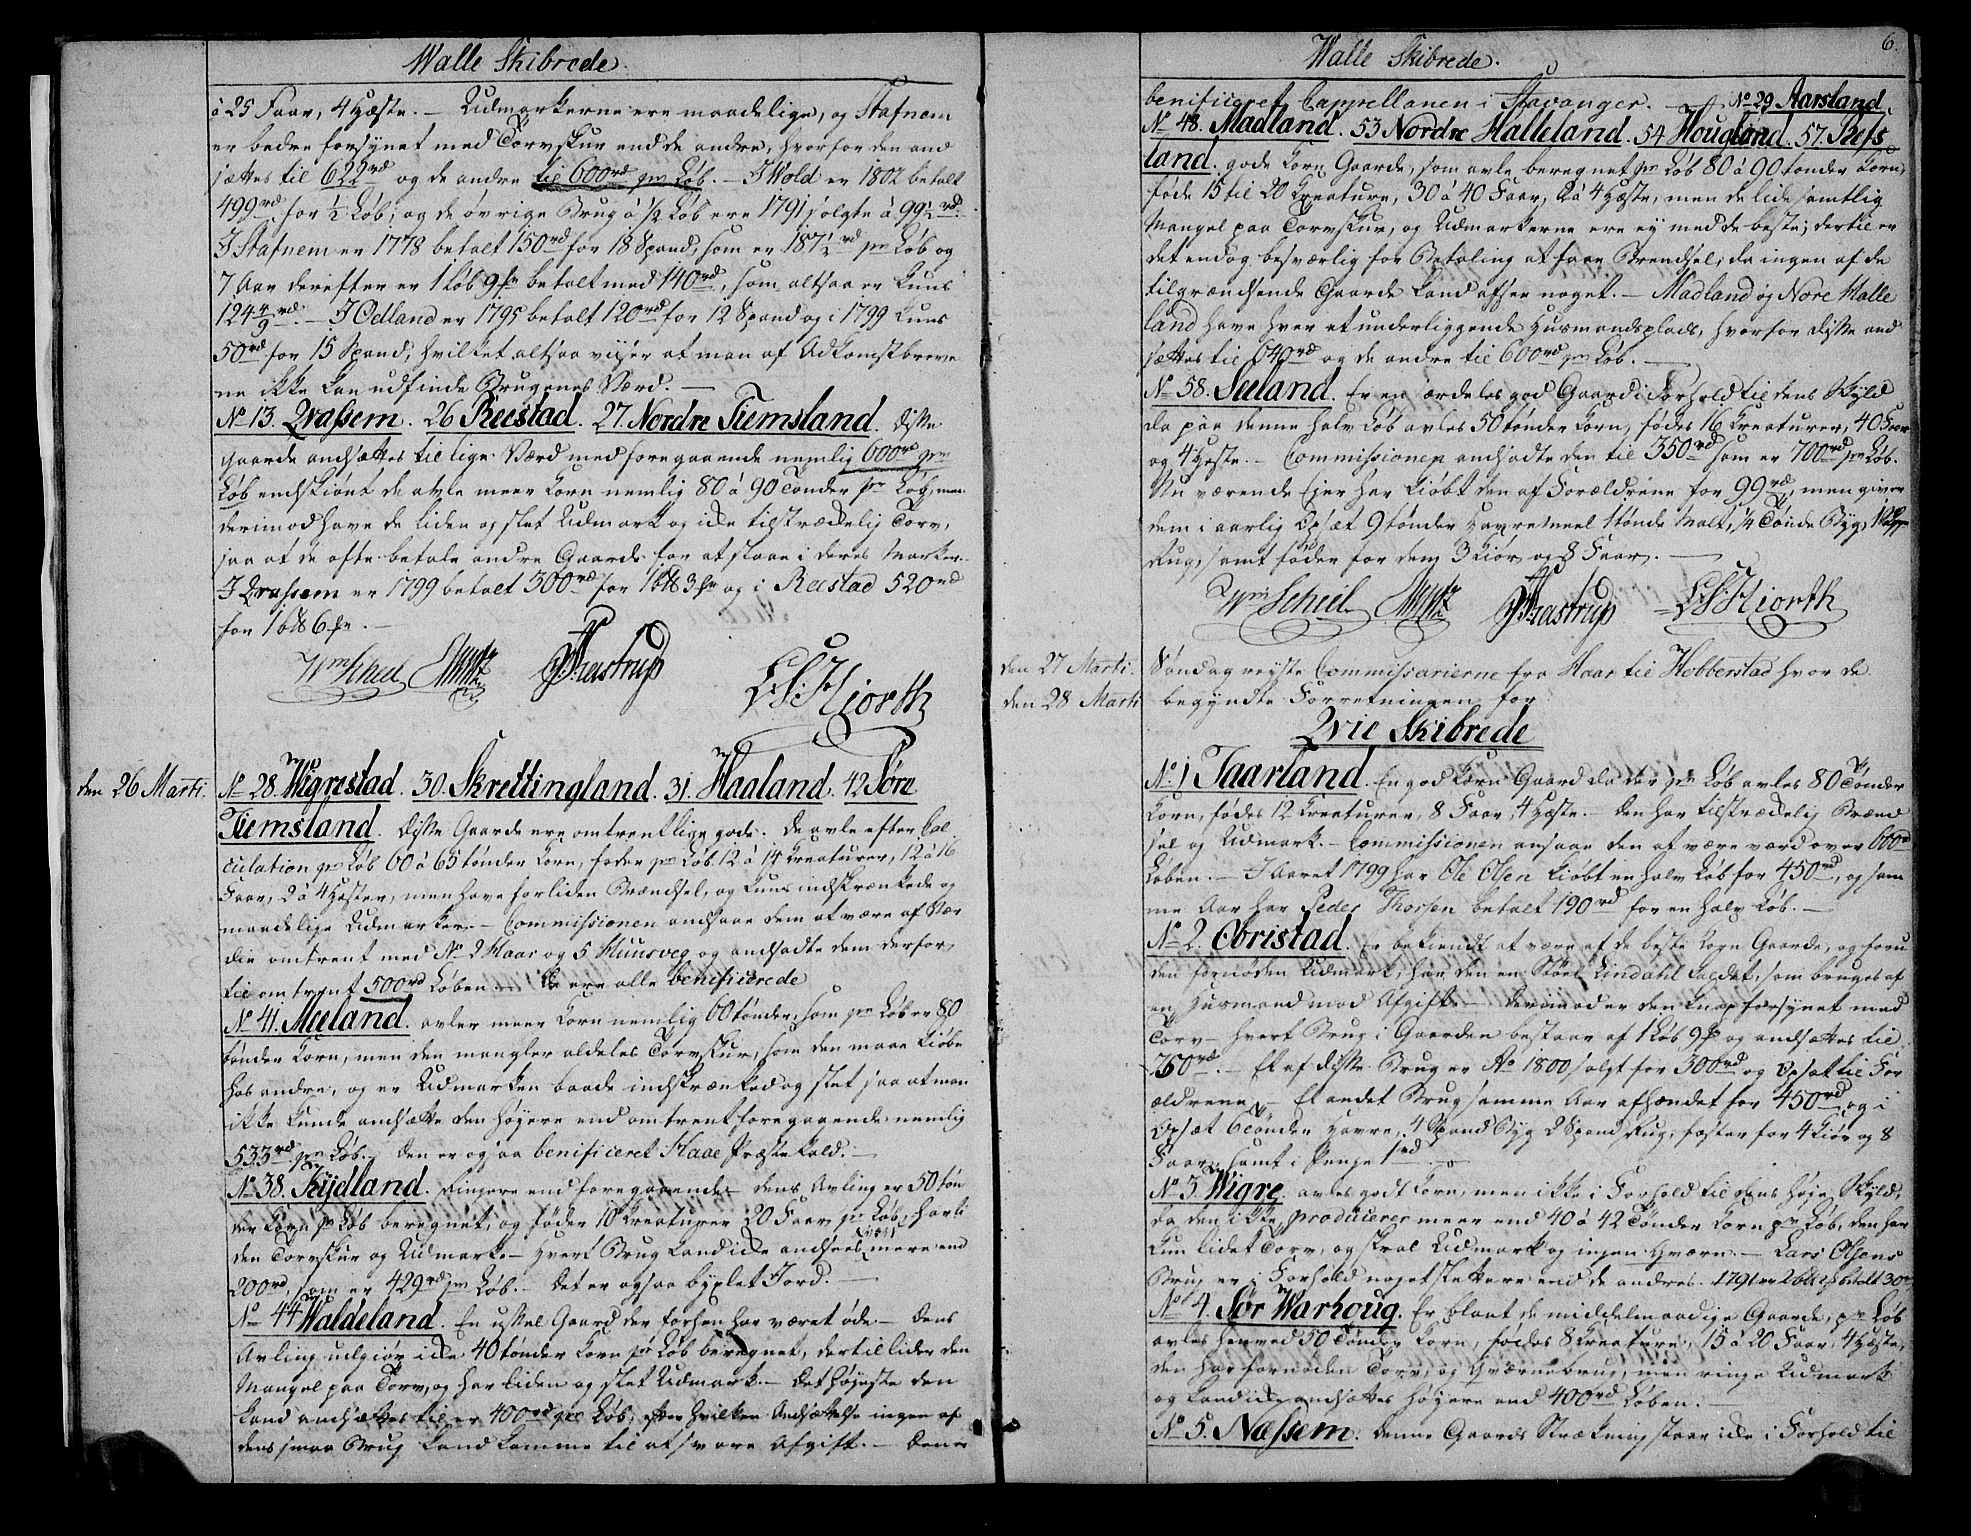 Walle Skibrede.
à 25 Faar, 4 Hæste. — Udmarkerne ere maadelige, og Stafnem
er bedre forsynet med Torvskur end de andre, hvorfor den and
sættes til 622rd og de andre til 600rd pr Løb. — I Wold er 1802 betalt
499rd for ½ Løb, og de øvrige Brug à ½ Løb ere 1791 solgte à 99½rd.
I Stafnem er 1778 betalt 150rd for 18 Spand, som er 187½rd pr Løb og
7 Aar derefter er 1 Løb 9 sp betalt med 140rd, som altsaa er kuns
124 4/9rd. — I Odland er 1795 betalt 120rd for 12 Spand og i 1799 kuns
50rd for 15 Spand, hvilket altsaa viiser at man af Adkomstbreve
ne ikke kan udfinde Brugenes Værd. —
No 13. Qvassem. 26 Reestad. 27. Nordre Tiemsland. Disse
Gaarde andsættes til lige Værd med foregaaende nemlig 600rd pr
Løb endskiønt de avle meer Korn nemlig 80 à 90 Tønder pr Løb, men
derimod have de liden og slet Udmark og icke tilstrædelig Torv,
saa at de ofte betale andre Gaarde for at staae i deres Marker.
I Qvassem er 1799 betalt 300rd for 1 Løb 3 sp og i Reestad 520rd
for 1 Løb 6 sp. —
Wm Scheel Aastrup C S Hiorth
den 26 Marti.
No 28. Wigrestad. 30. Skrettingland. 31. Haaland. 42 Søre
Tiemsland. Disse Gaarde ere omtrent lige gode. De avle efter Cal
culation pr Løb 60 à 65 tønder Korn, føder pr Løb 12 à 14 Kreaturer, 12 à 16
Faar, 2 à 4 Hæster, men have for liden Brændsel, og kuns indskrænkede og
maadelige Udmarker. — Commissionen andsaae dem at være af Vær
die omtrent med No 2 Haar og 5 Huusveg og andsadte dem derfor
til omtrent 500rd Løben. — De ere alle benificerede
No 41. Meeland. avler meer Korn nemlig 60 tønder, som pr Løb er 80
tønder Korn, men den mangler aldeles Torvskur, som den maae kiøbe
hos andre, og er Udmarken baade indskrænked og slet saa at man
ikke kunde andsætte den høyere end omtrent foregaaende nemlig
533rd pr Løb. Den er ogsaa benificeret Haae Præstekald. —
No 38. Rydland. ringere end foregaaende — dens Avling er 50 tøn
der Korn pr Løb beregnet, og føder 10 Kreaturer 20 Faar pr Løb, har li
den Torvskur og Udmark — hvert Brug kand icke andsees mere end
200rd, som er 429rd pr Løb. — Det er ogsaa byxlet Jord. —
No 44 Waldeland. En ussel Gaard der forhen har været øde — Dens
Avling udgiør icke 40 tønder Korn pr Løb beregnet, dertil lider den
Mangel paa Torv, og har liden og slet Udmark. — Det høyeste den
kand andsættes til er 400rd pr Løb, efter hvilken Andsættelse ingen af
dens smaa Brug kand komme til at svare Afgift. — Denne
6.
Walle Skibrede.
benificeret Cappellanen i Stavanger. — No 29 Aarsland.
No 48. Madland. 53 Nordre Halleland. 54 Hougland. 57. Refs
land. gode Korn Gaarde, som avle beregnet pr Løb 80 à 90 tønder Korn,
føde 15 til 20 Kreature, 30 à 40 Faar, 2 à 4 Hæste, men de lide samtlig
Mangel paa Torvskur, og Udmarkerne ere ey med de beste; dertil er
det endog besværlig for Betaling at faae Brendsel, da ingen af de
tilgrændsende Gaarde kand afsee noget. — Madland og Nore Halle
land have hver et underliggende Husmandsplads, hvorfor disse and
sættes til 640rd og de andre til 600rd pr Løb. —
No 58. Seeland. Er en særdeles god Gaard i Forhold til dens Skyld
da paa denne halv Løb avles 50 tønder Korn, fødes 16 Kreaturer, 40 Faar
og 4 Hæste. — Commissionen andsadte den til 350rd som er 700rd pr Løb.
Nu værende Ejer har kiøbt den af Forældrene for 99rd, men giver
dem i aarlig Opsæt 9 tønder Havremeel 1 tønde Malt, ¼ Tønde Byg,
Rug, samt føder for dem 3 Kiør og 8 Faar. —
Wm Scheel Aastrup C S Hiorth
den 27 Marti.
den 28 Marti
Søndag reyste Commissarierne fra Haar til Hobberstad hvor de
begyndte Forretningen for
Qvie Skibrede
No 1 Taarland. En god Korn Gaard da der pr Løb avles 80 Tønder
Korn, fødes 12 Kreaturer, 8 Faar, 4 Hæste. — Den har tilstrædelig Brænd
sel og Udmark. — Commissionen ansaae den at være værd over 600rd
Løben. — I Aaret 1799 har Ole Olsen kiøbt en halv Løb for 450rd, og sam
me Aar har Peder Thorsen betalt 190rd for en halv Løb. —
No 2. Obristad. Er bekiendt at være af de beste Korn Gaarde, og foru
den fornøden Udmark, har den en Støel Lindahl kaldet, som bruges af
en Husmand mod Afgift. — Derimod er den knap forsynet med
Torv — hvert Brug i Gaarden bestaar af 1 Løb 9 sp og andsættes til
760rd. — Et af disse Brug er Ao 1800 solgt for 300rd og Opsat til For
ældrene, — Et andet Brug samme Aar afhændet for 450rd og i
Opsæt 6 Tønder Havre, 4 Spand Byg 2 Spand Rug, foster for 4 Kiør og 8
Faar, samt i Penge 1rd —
No 3. Wigre. avles godt Korn, men ikke i Forhold til dens høje Skyld,
da den ikke producerer meer end 40 à 42 Tønder Korn pr Løb, den har
kun lidet Torv, og skral Udmark og ingen Hværn. — Lars Olsens
Brug er i Forhold noget slettere end de andres. 1791 er betalt
No 4. Sør Warhoug. Er blant de middelmaadige Gaarde, pr Løb
avles henved 50 Tønder Korn, fødes 8 Kreature, 15 à 20 Faar, 4 Hæste,
den har fornøden Torv, og Qværnebrug, men ringe Udmark
og kand icke andsættes høyere end 400rd Løben. —
No 5. Næssem. denne Gaards Strækning staar icke i Forhold til